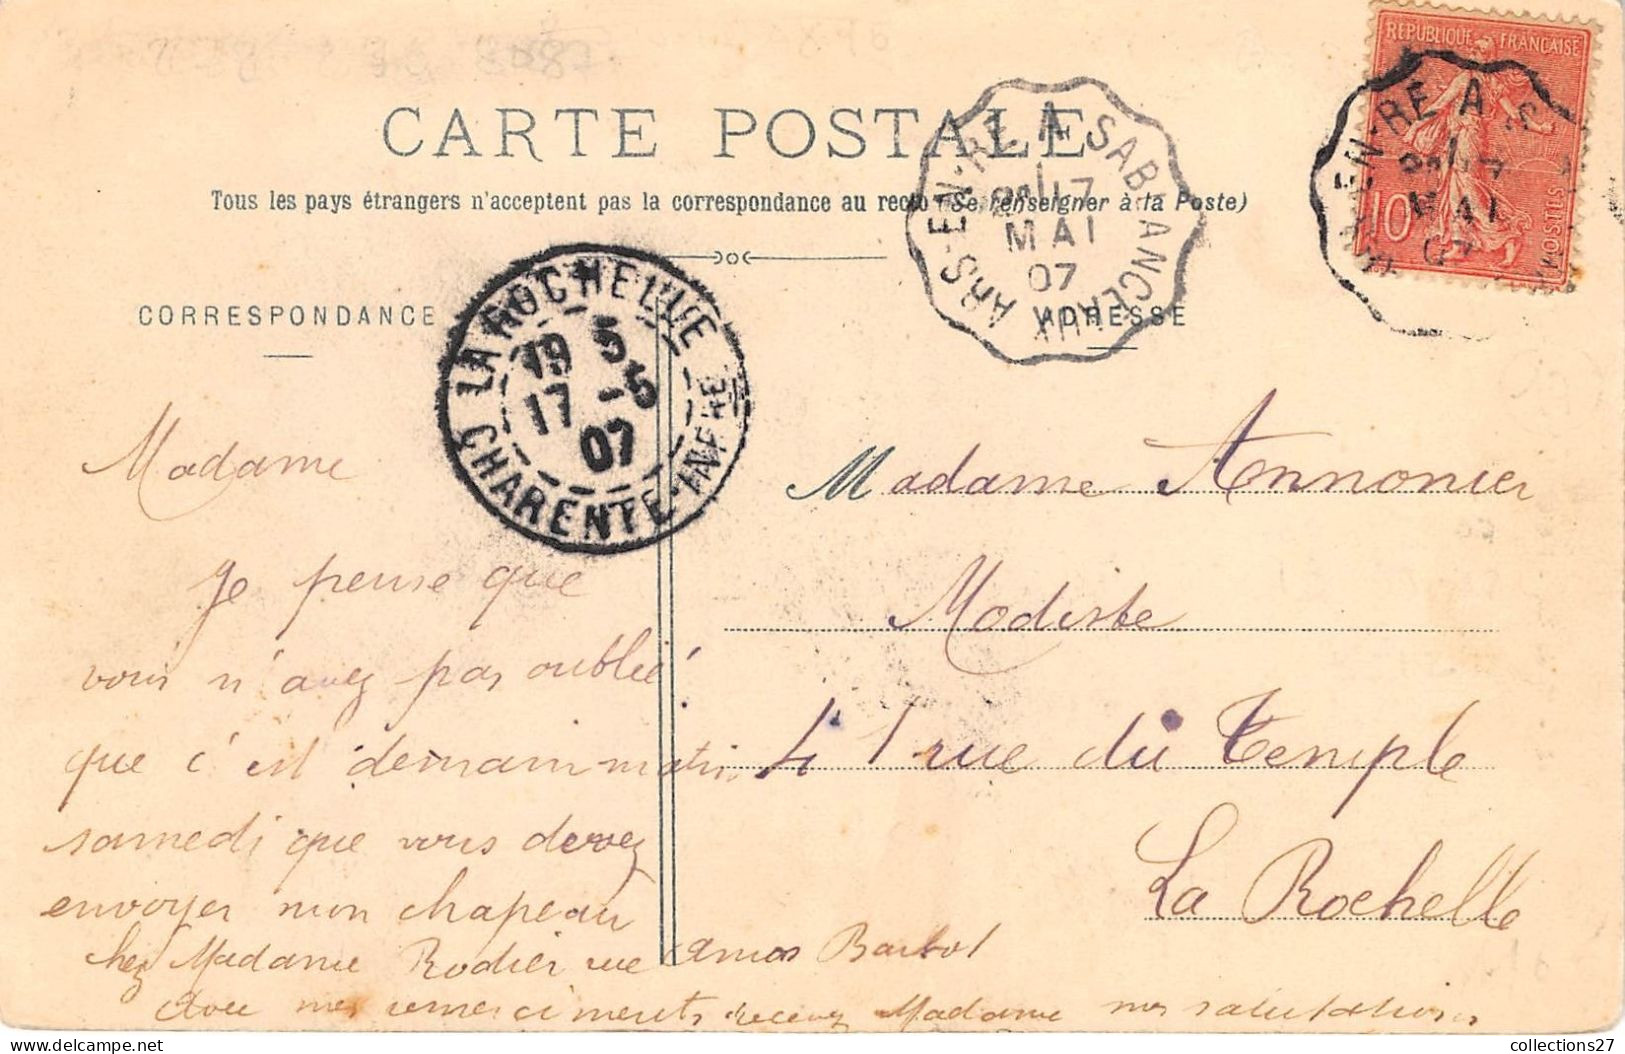 CARTE POSTALE
Tous les pays étrangers n'acceptent pas la correspondance au recto (Se renseigner à la Poste)
CORRESPONDANCE
ADRESSE
REPUBLIQUE FRANÇAISE
10
POSTES
ARS-EN-RE A S
MAI
07
ARS-EN-RE A SABLANCEAUX
17
MAI
07
LA ROCHELLE
19 5
17 -5
07
CHARENTE-INFRE
Madame
Je pense que
vous n'avez pas oublié
que c'est demain matin
samedi que vous devez
envoyer mon chapeau
chez Madame Rodier rue Amos Barbot
Avec mes remerciments recevez Madame mes salutations
Madame Annonier
Modiste
41 rue du Temple
La Rochelle
collections27